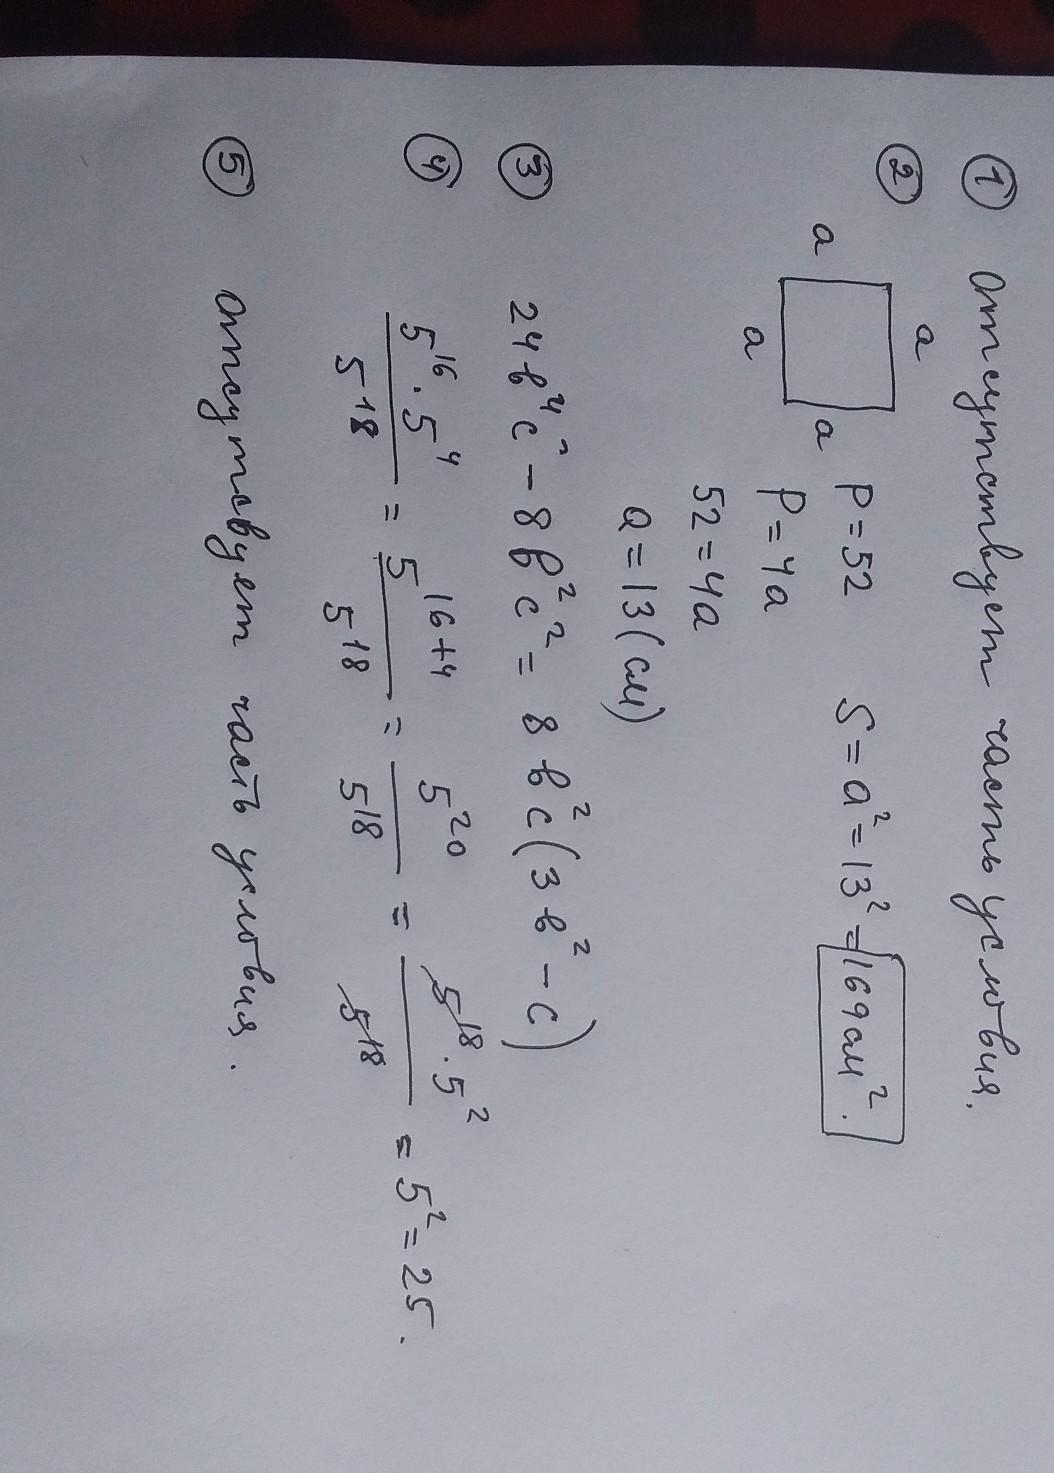 ① отсутствует часть условия.
② a a a a P = 52 S = a² = 13² = 169 см².
P = 4a
52 = 4a
a = 13 (см)
③ 24b⁴c - 8b²c² = 8b²c(3b² - c)
④ 5¹⁶ · 5⁴ / 5¹⁸ = 5¹⁶⁺⁴ / 5¹⁸ = 5²⁰ / 5¹⁸ = 5¹⁸ · 5² / 5¹⁸ = 5² = 25.
⑤ отсутсвует часть условия.